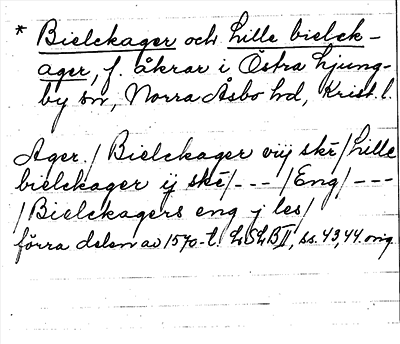 * Bielckager och Lille bielck-
ager, f. åkrar i Östra Ljung-
by sn, Norra Åsbo hd, Krist. l.
Ager. / Bielckager viij ske / Lille
bielckager ij ske / - - - / Eng / - - -
/ Bielckagers eng j les /
förra delen av 1570-t. LSLB II, ss. 43, 44. orig.